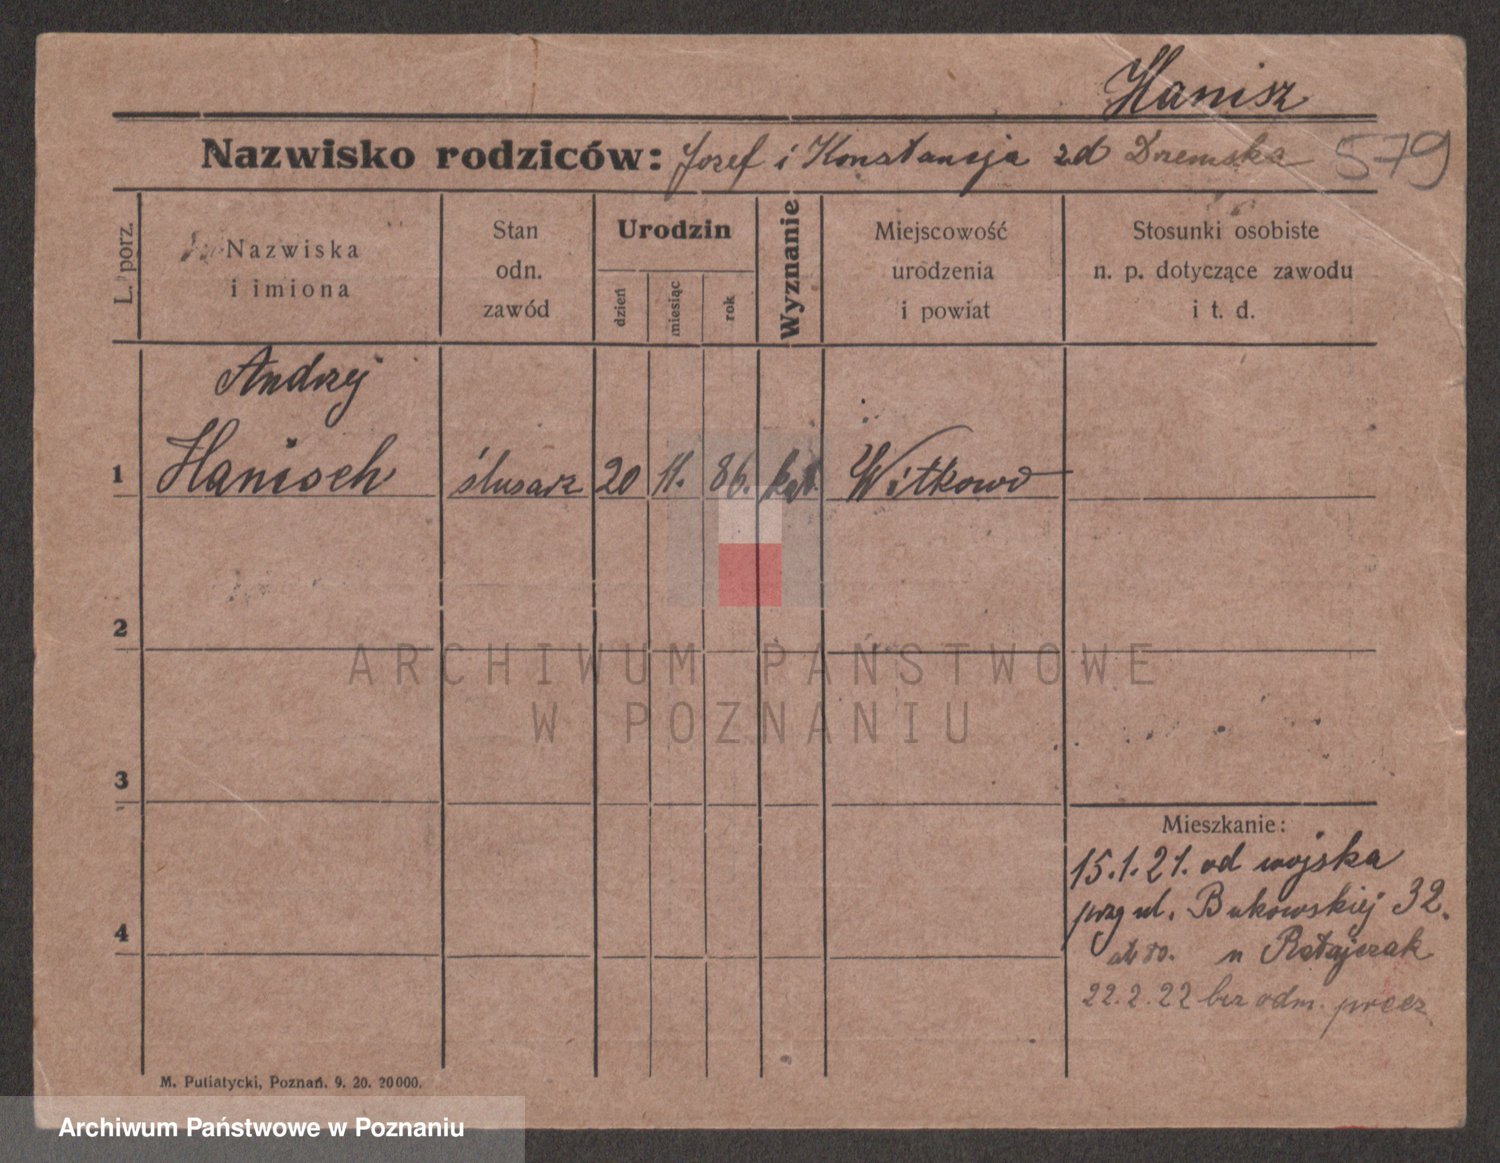 Hanisz
Nazwisko rodziców: Jozef i Konstancja zd Dremska 579
L. porz.
Nazwiska
i imiona
Stan
odn.
zawód
Urodzin
dzień
miesiąc
rok
Wyznanie
Miejscowość
urodzenia
i powiat
Stosunki osobiste
n. p. dotyczące zawodu
i t. d.
Andrzej
1 Hanisch ślusarz 20 11. 86. kat. Witkowo
2
3
4
Mieszkanie:
15.1.21. od wojska
przy ul. Bukowskiej 32.
u Ratajczak
22.2.22 bez odm. precz
M. Putiatycki, Poznań. 9. 20. 20000.
ARCHIWUM PAŃSTWOWE
W POZNANIU
Archiwum Państwowe w Poznaniu